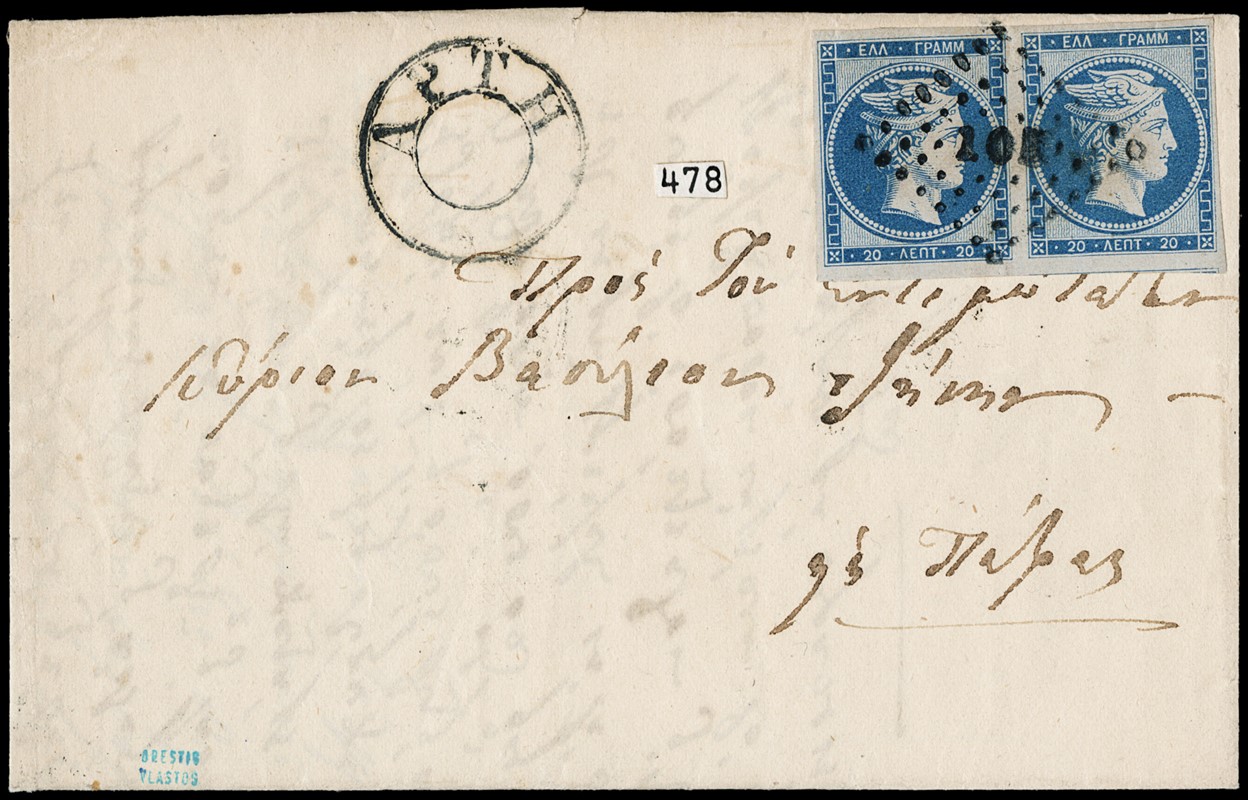 ΑΡΤΗ
ΕΛΛ ΓΡΑΜΜ
20 ΛΕΠΤ 20
ΕΛΛ ΓΡΑΜΜ
20 ΛΕΠΤ 20
478
Πρός Τόν
Κύριον Βασίλειον
εἰς Πάτρας
ORESTIS
VLASTOS